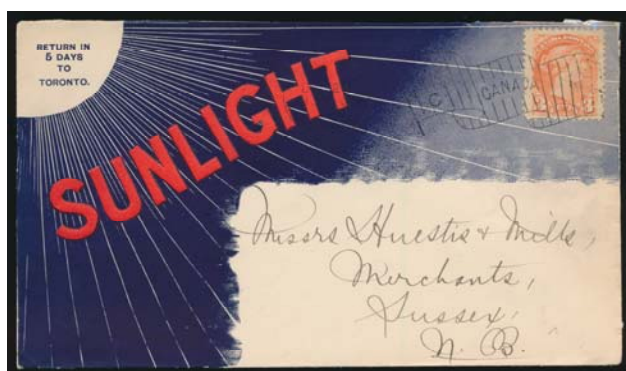 RETURN IN
5 DAYS
TO
TORONTO.
SUNLIGHT
C
CANADA
Messrs Huestis & Mills,
Merchants,
Sussex,
N. B.